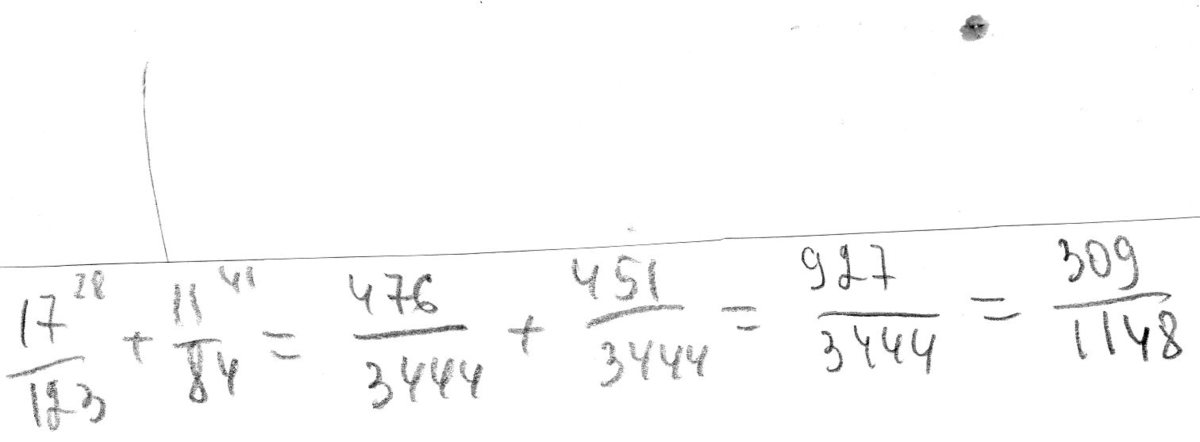 17/123 ²⁸ + 11/84 ⁴¹ = 476/3444 + 451/3444 = 927/3444 = 309/1148